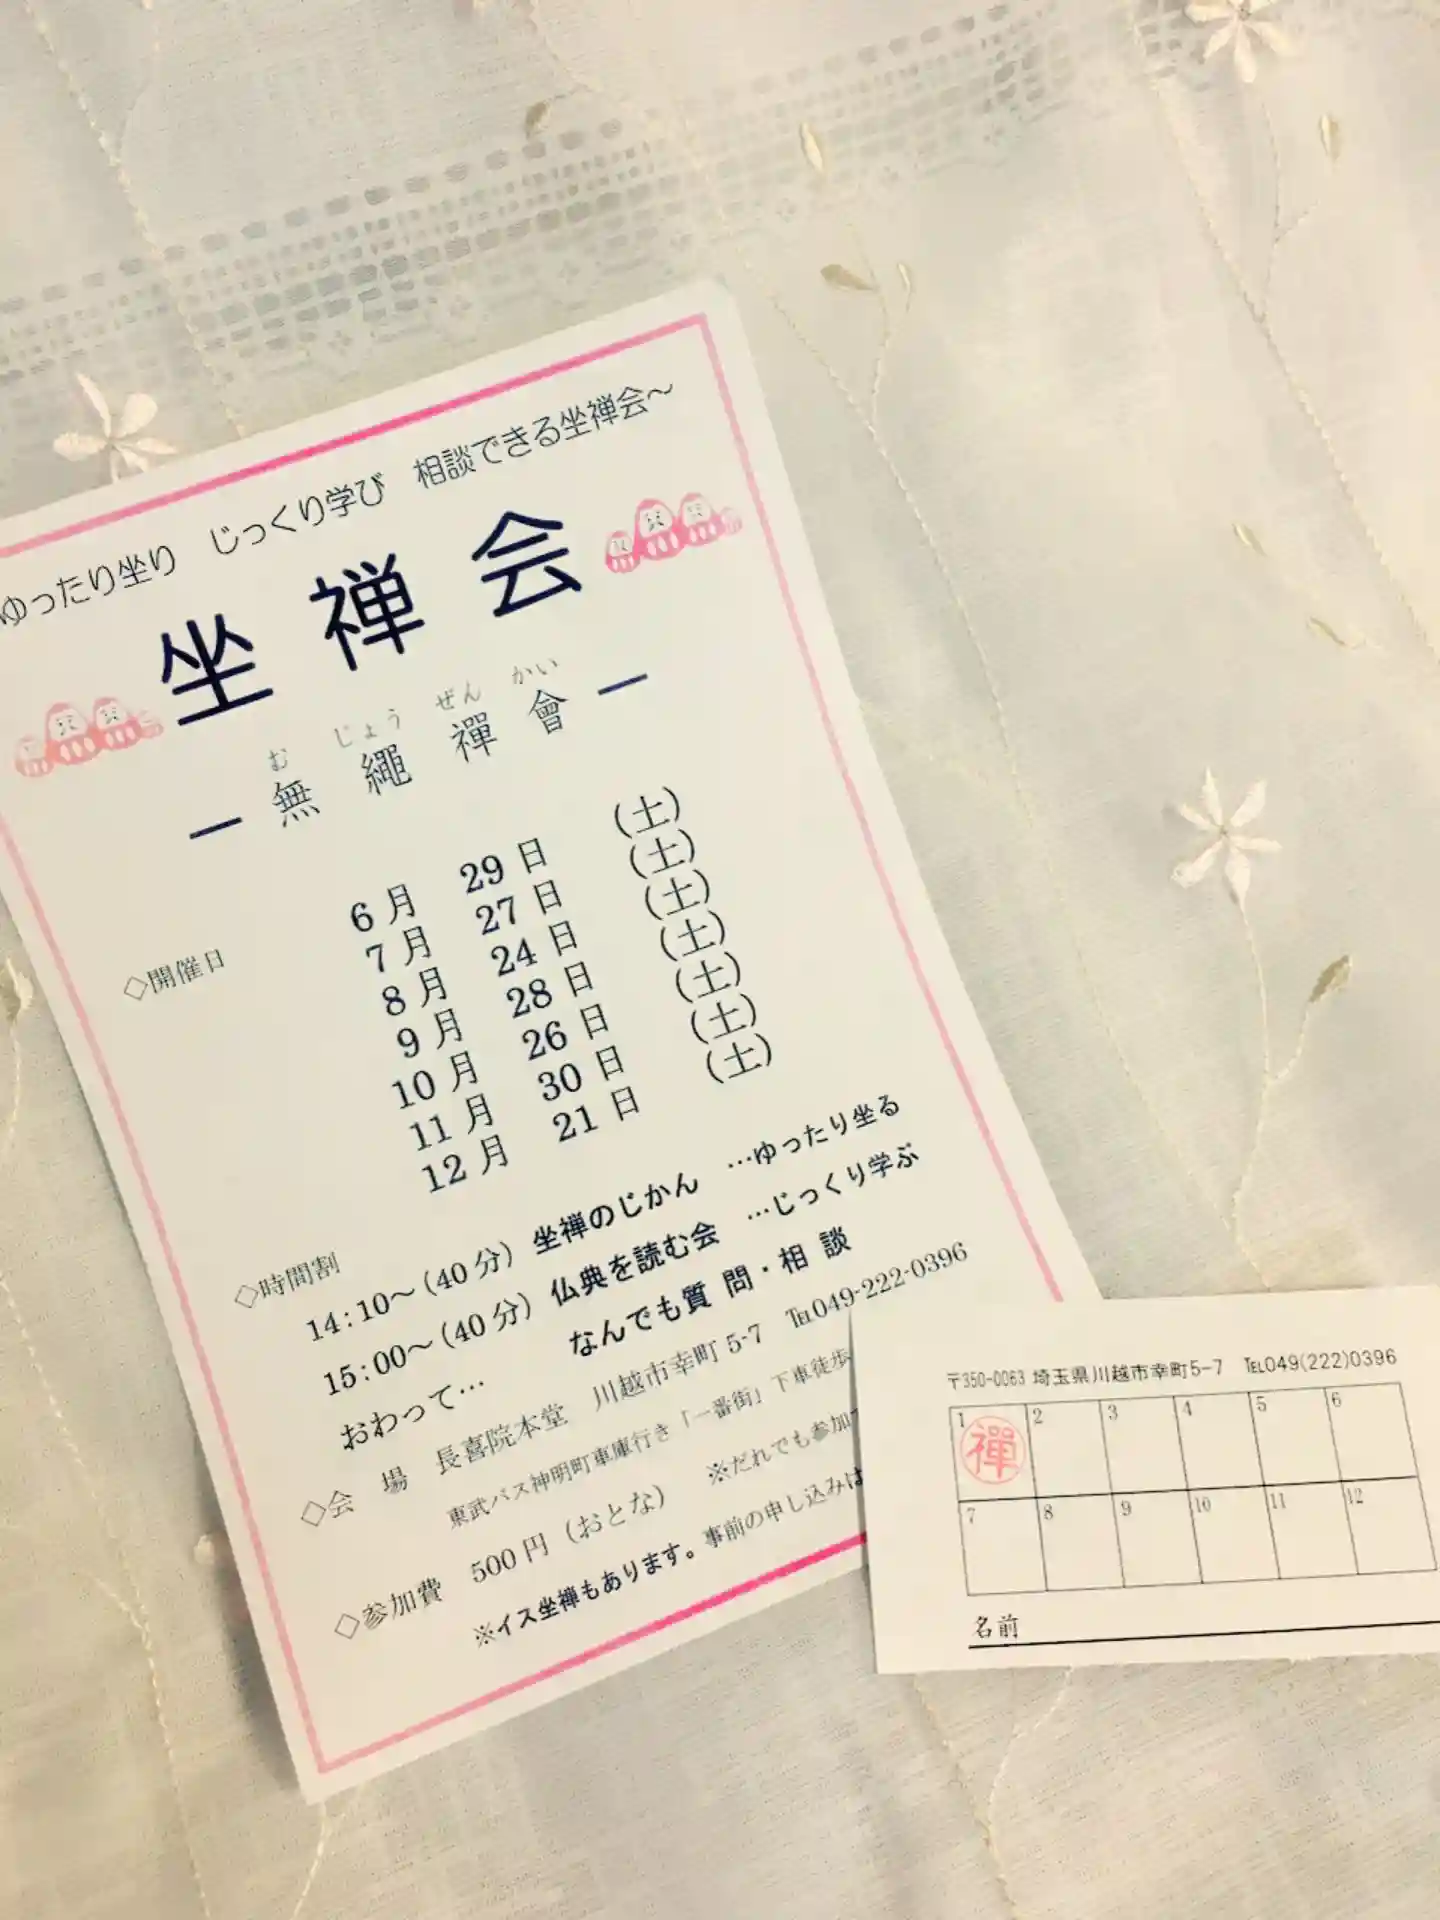 ゆったり坐り じっくり学び 相談できる坐禅会～
坐禅会
む じょう ぜん かい
― 無繩禪會 ―
◇開催日
6月 29日 (土)
7月 27日 (土)
8月 24日 (土)
9月 28日 (土)
10月 26日 (土)
11月 30日 (土)
12月 21日 (土)
◇時間割
14:10～(40分) 坐禅のじかん …ゆったり坐る
15:00～(40分) 仏典を読む会 …じっくり学ぶ
おわって… なんでも質問・相談
◇会 場 長喜院本堂 川越市幸町 5-7 ℡049-222-0396
東武バス神明町車庫行き「一番街」下車徒歩
◇参加費 500円（おとな） ※だれでも参加
※イス坐禅もあります。事前の申し込みは
〒350-0063 埼玉県川越市幸町5-7 ℡049(222)0396
1 2 3 4 5 6
禪
7 8 9 10 11 12
名前